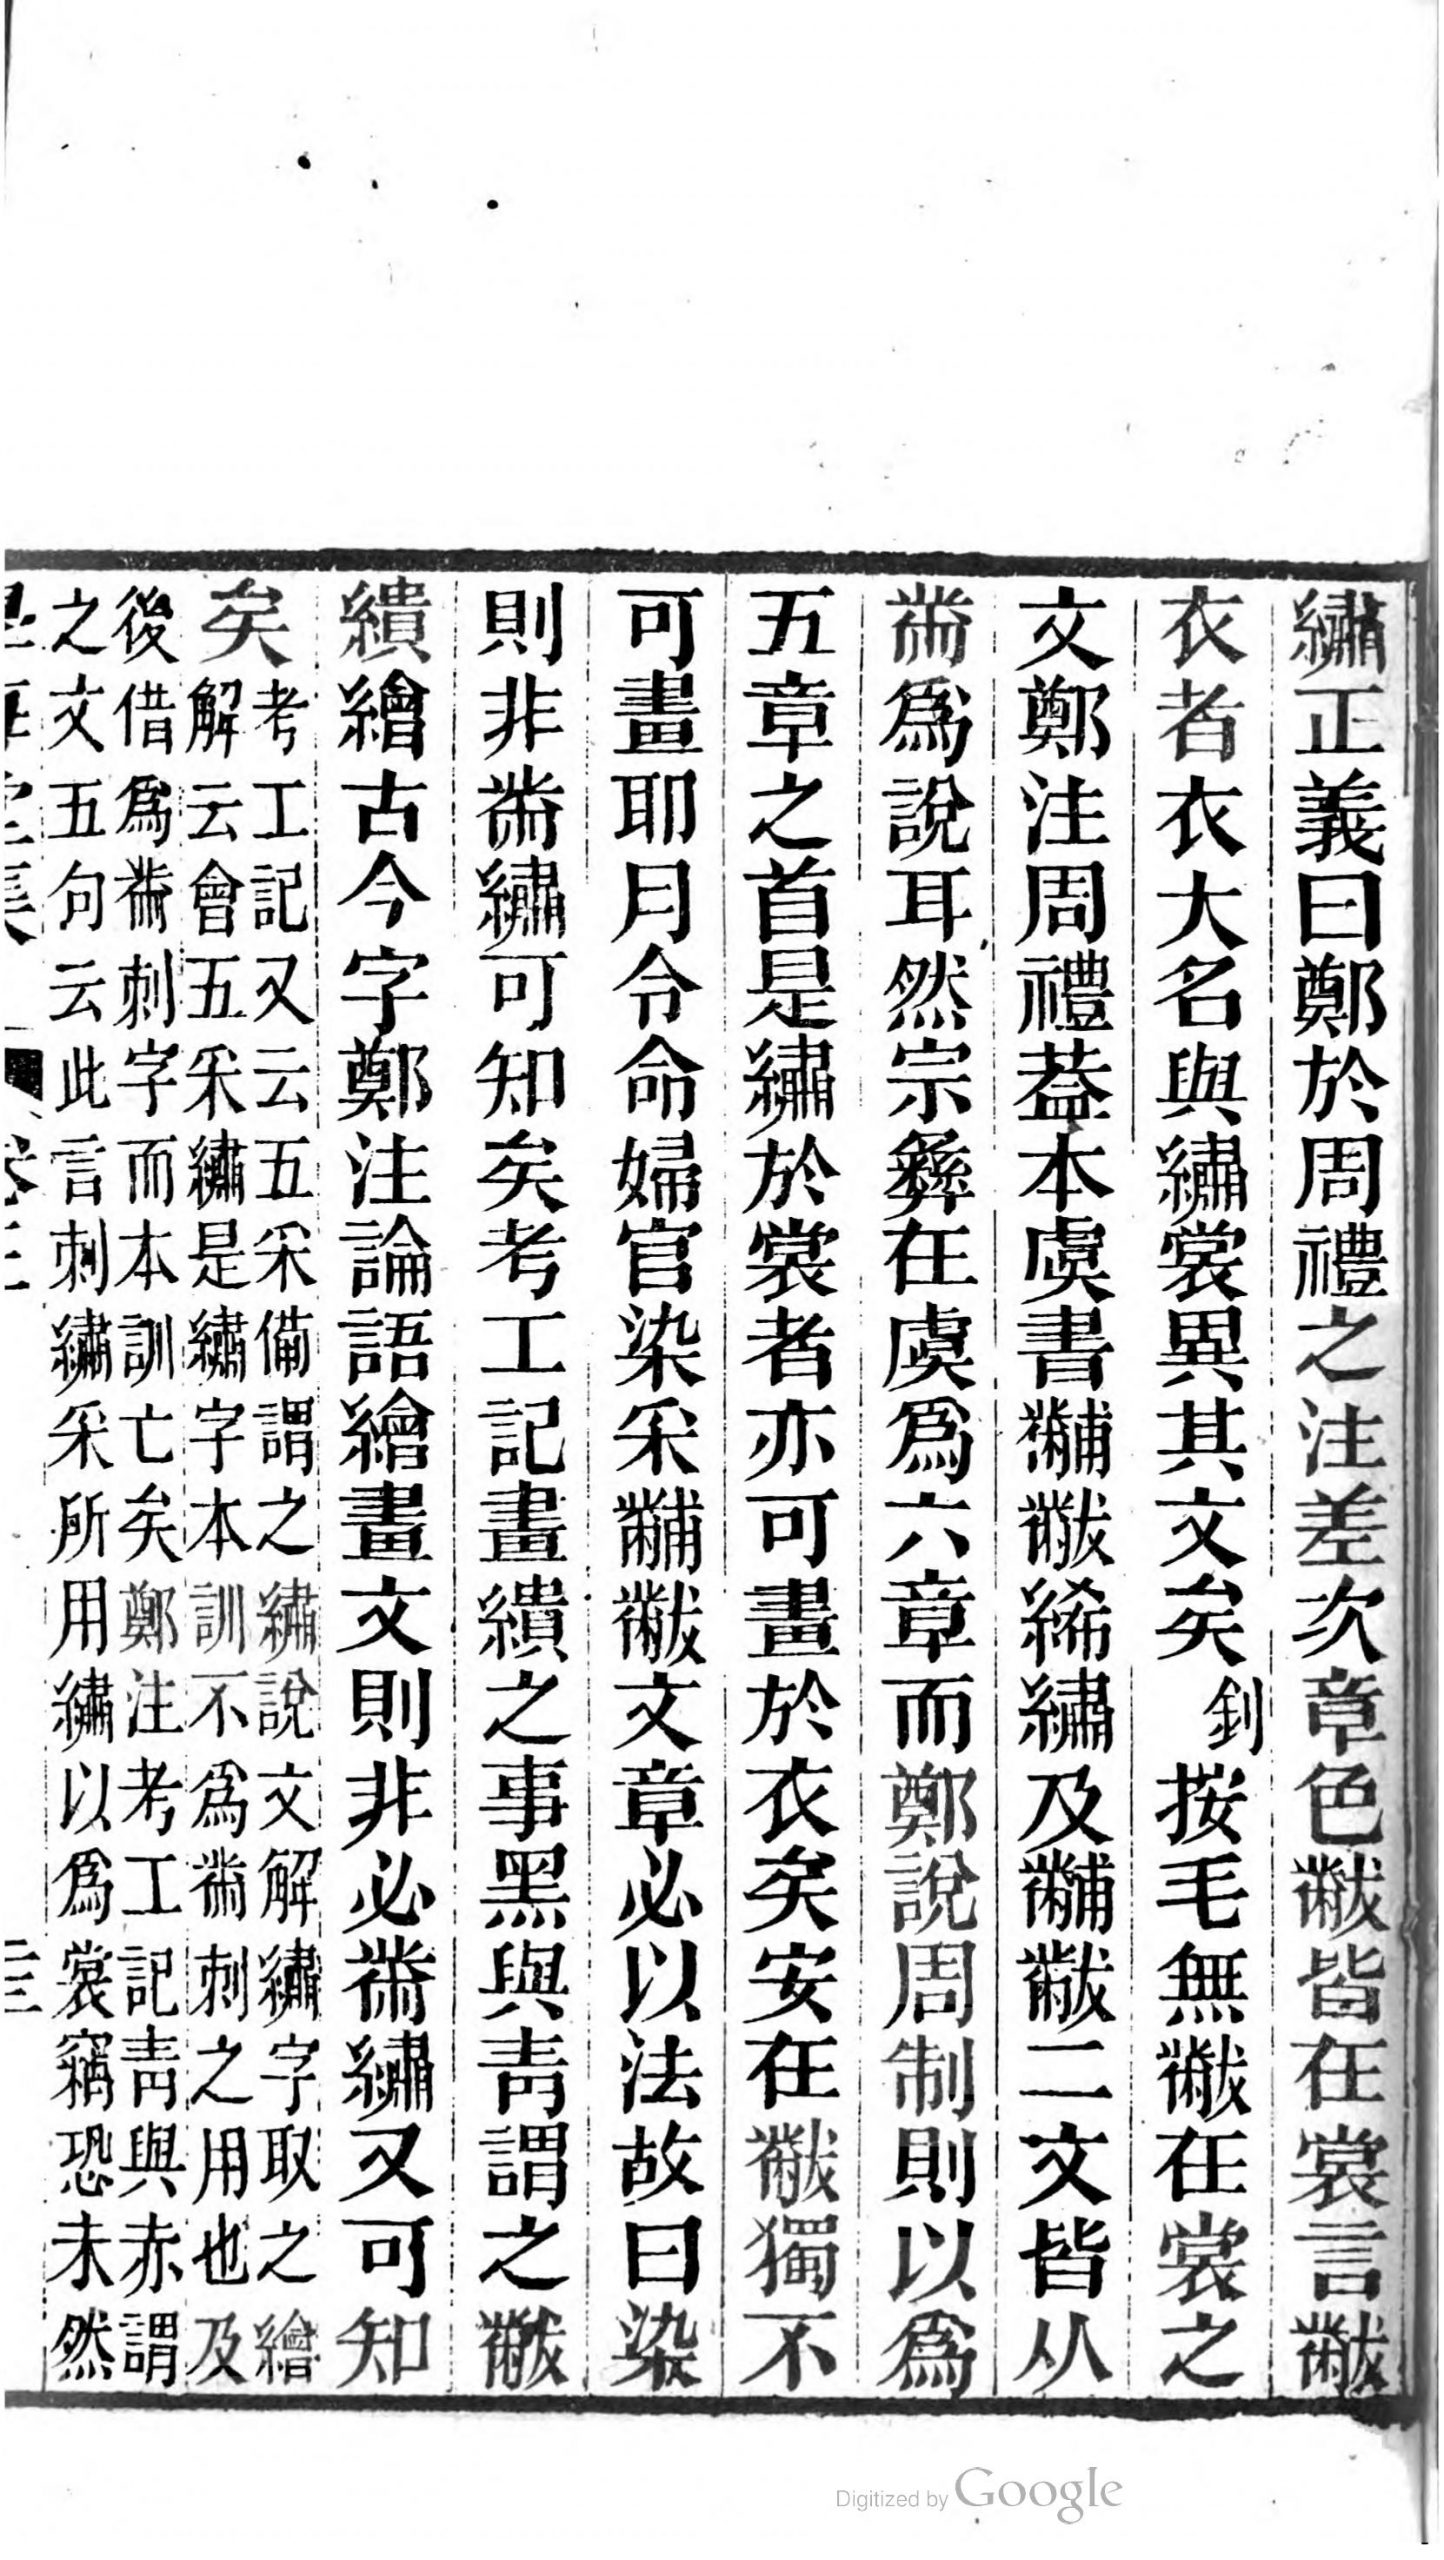 繡正義曰鄭於周禮之注差次章色黻皆在裳言黻
衣者衣大名與繡裳異其文矣釗按毛無黻在裳之
文鄭注周禮葢本虞書黼黻絺繡及黼黻二文皆从
黹爲說耳然宗彝在虞爲六章而鄭說周制則以爲
五章之首是繡於裳者亦可畫於衣矣安在黻獨不
可畫耶月令命婦官染采黼黻文章必以法故曰染
則非黹繡可知矣考工記畫繢之事黑與青謂之黻
繢繪古今字鄭注論語繪畫文則非必黹繡又可知
矣
考工記又云五采備謂之繡說文解繡字取之繪
解云會五采繡是繡字本訓不爲黹刺之用也及
後借爲黹刺字而本訓亡矣鄭注考工記青與赤謂
之文五句云此言刺繡采所用繡以爲裳竊恐未然
Digitized by Google